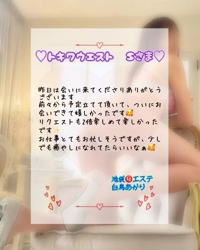 💜トキワウエスト Iさま💜
昨日は会いに来てくださりありがとう
ございます
前々から予定立てて頂いて、ついにお
会いできて嬉しかったです🥰
リクエストも2倍楽しめて楽しかった
です
お仕事とてもお忙しそうですが、少し
でも癒やしになれてたらいいなぁ💓
池袋エステ
白鳥あかり